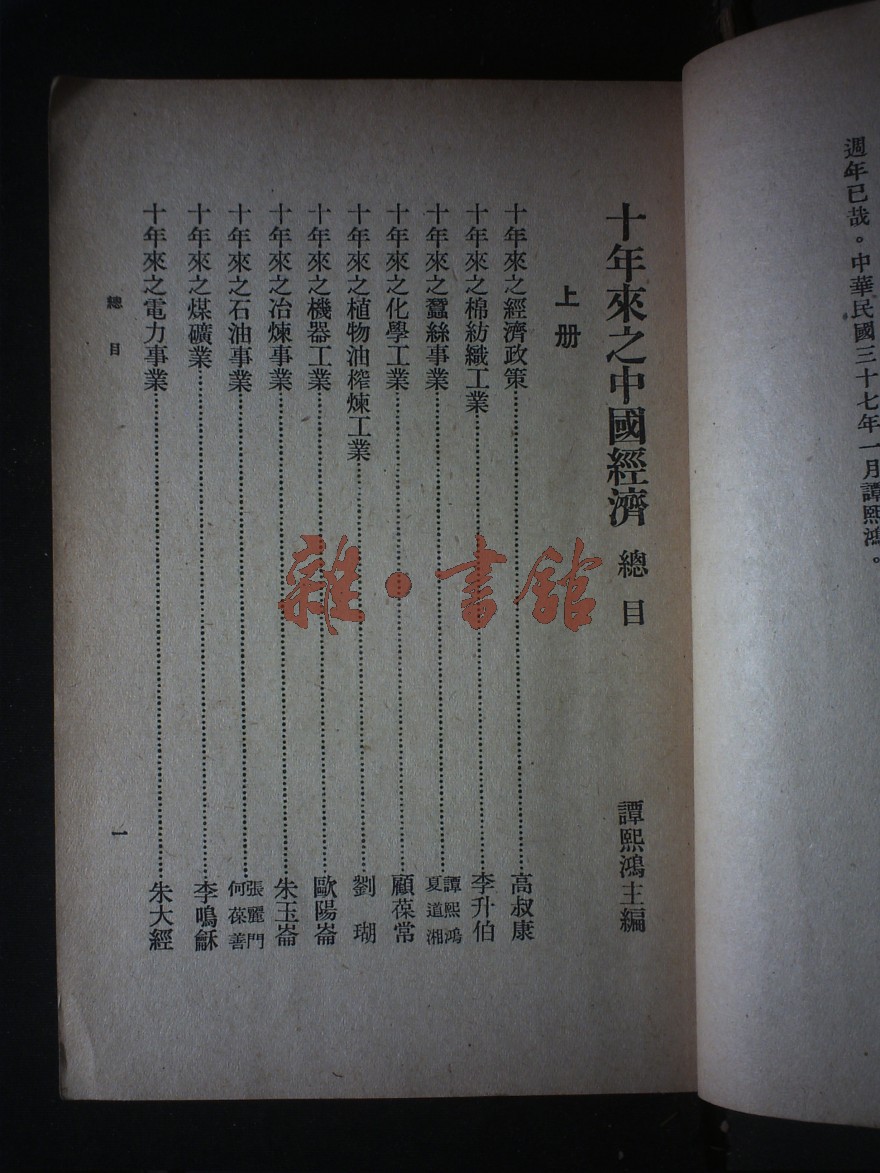 週年已哉。中華民國三十七年一月譚熙鴻。
十年來之中國經濟 總目 譚熙鴻主編
上册
十年來之經濟政策……高叔康
十年來之棉紡織工業……李升伯
十年來之蠶絲事業……譚熙鴻 夏道湘
十年來之化學工業……顧葆常
十年來之植物油榨煉工業……劉瑚
十年來之機器工業……歐陽崙
十年來之冶煉事業……朱玉崙
十年來之石油事業……張麗門 何葆善
十年來之煤礦業……李鳴龢
十年來之電力事業……朱大經
總目
一
雜·書館